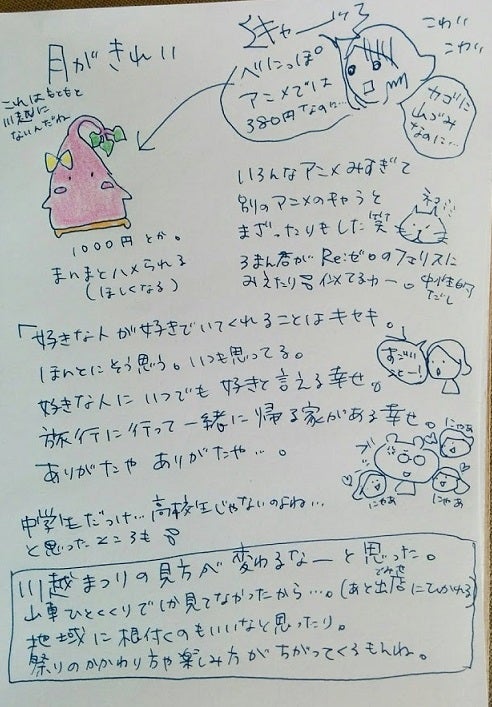 月がきれい
これはもともと
川越に
ないんだね
キャーッ
べにっぽ。
アニメでは
380円なのに…
こわい
こわい
カゴに
山づみ
なのに…
1000円とか。
まんまとハメられる
(ほしくなる)
いろんなアニメみすぎて
別のアニメのキャラと
まざったりもした笑
ネコ
ろまん君がRe:ゼロのフェリスに
みえたり 似てるかー。中性的
だし
「好きな人が好きでいてくれることはキセキ。
ほんとにそう思う。いつも思ってる。
好きな人にいつでも好きと言える幸せ。
旅行に行って一緒に帰る家がある幸せ。
ありがたや ありがたや…。
すごい
にゃあ
にゃあ
にゃあ
中学生だっけ…高校生じゃないのよね…
と思ったところも
川越まつりの見方が変わるなーと思った。
山車ひとくくりでしか見てなかったから…。(あと出店にひかれる)
でみせ
地域に根付くのもいいなと思ったり。
祭りのかかわり方や楽しみ方がちがってくるもんね。